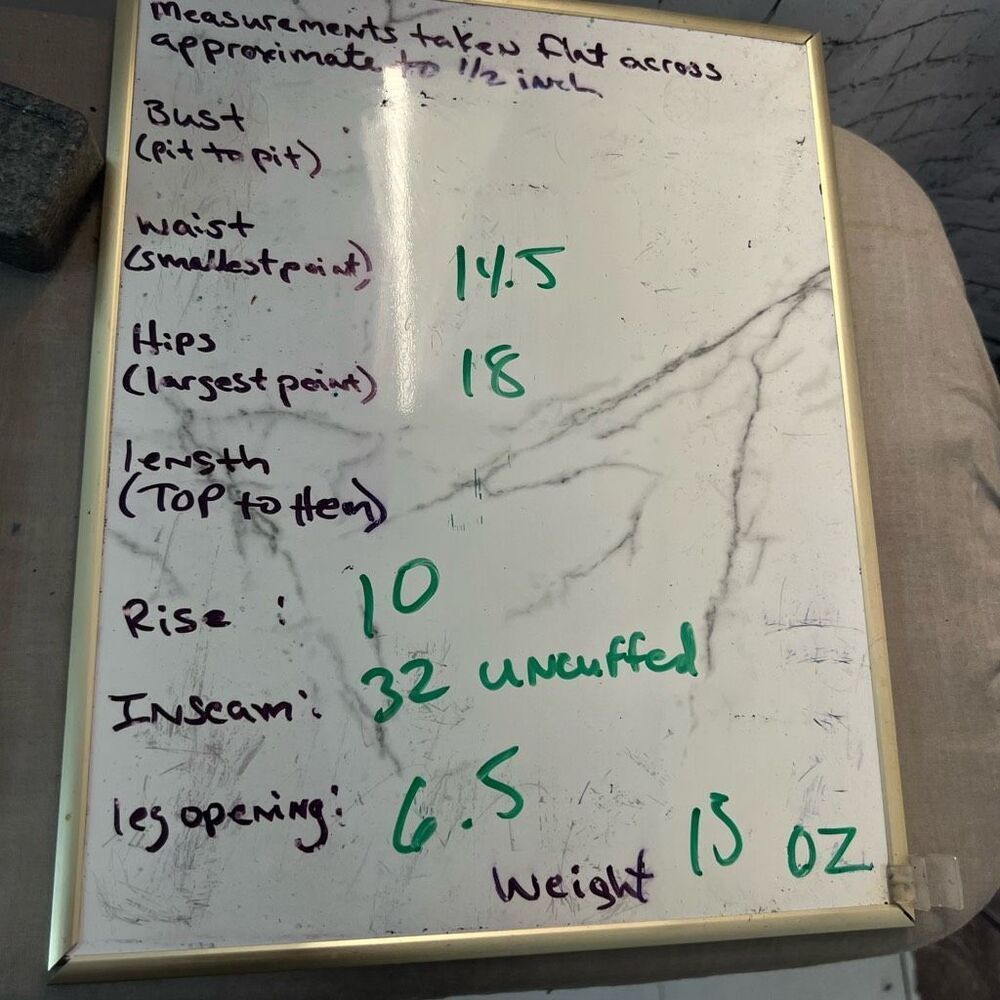 Measurements taken flat across
approximate to 1/2 inch
Bust
(pit to pit)
waist
(smallest point) 14.5
Hips
(largest point) 18
length
(TOP to Hem)
Rise : 10
Inseam: 32 uncuffed
leg opening: 6.5
Weight 15 oz